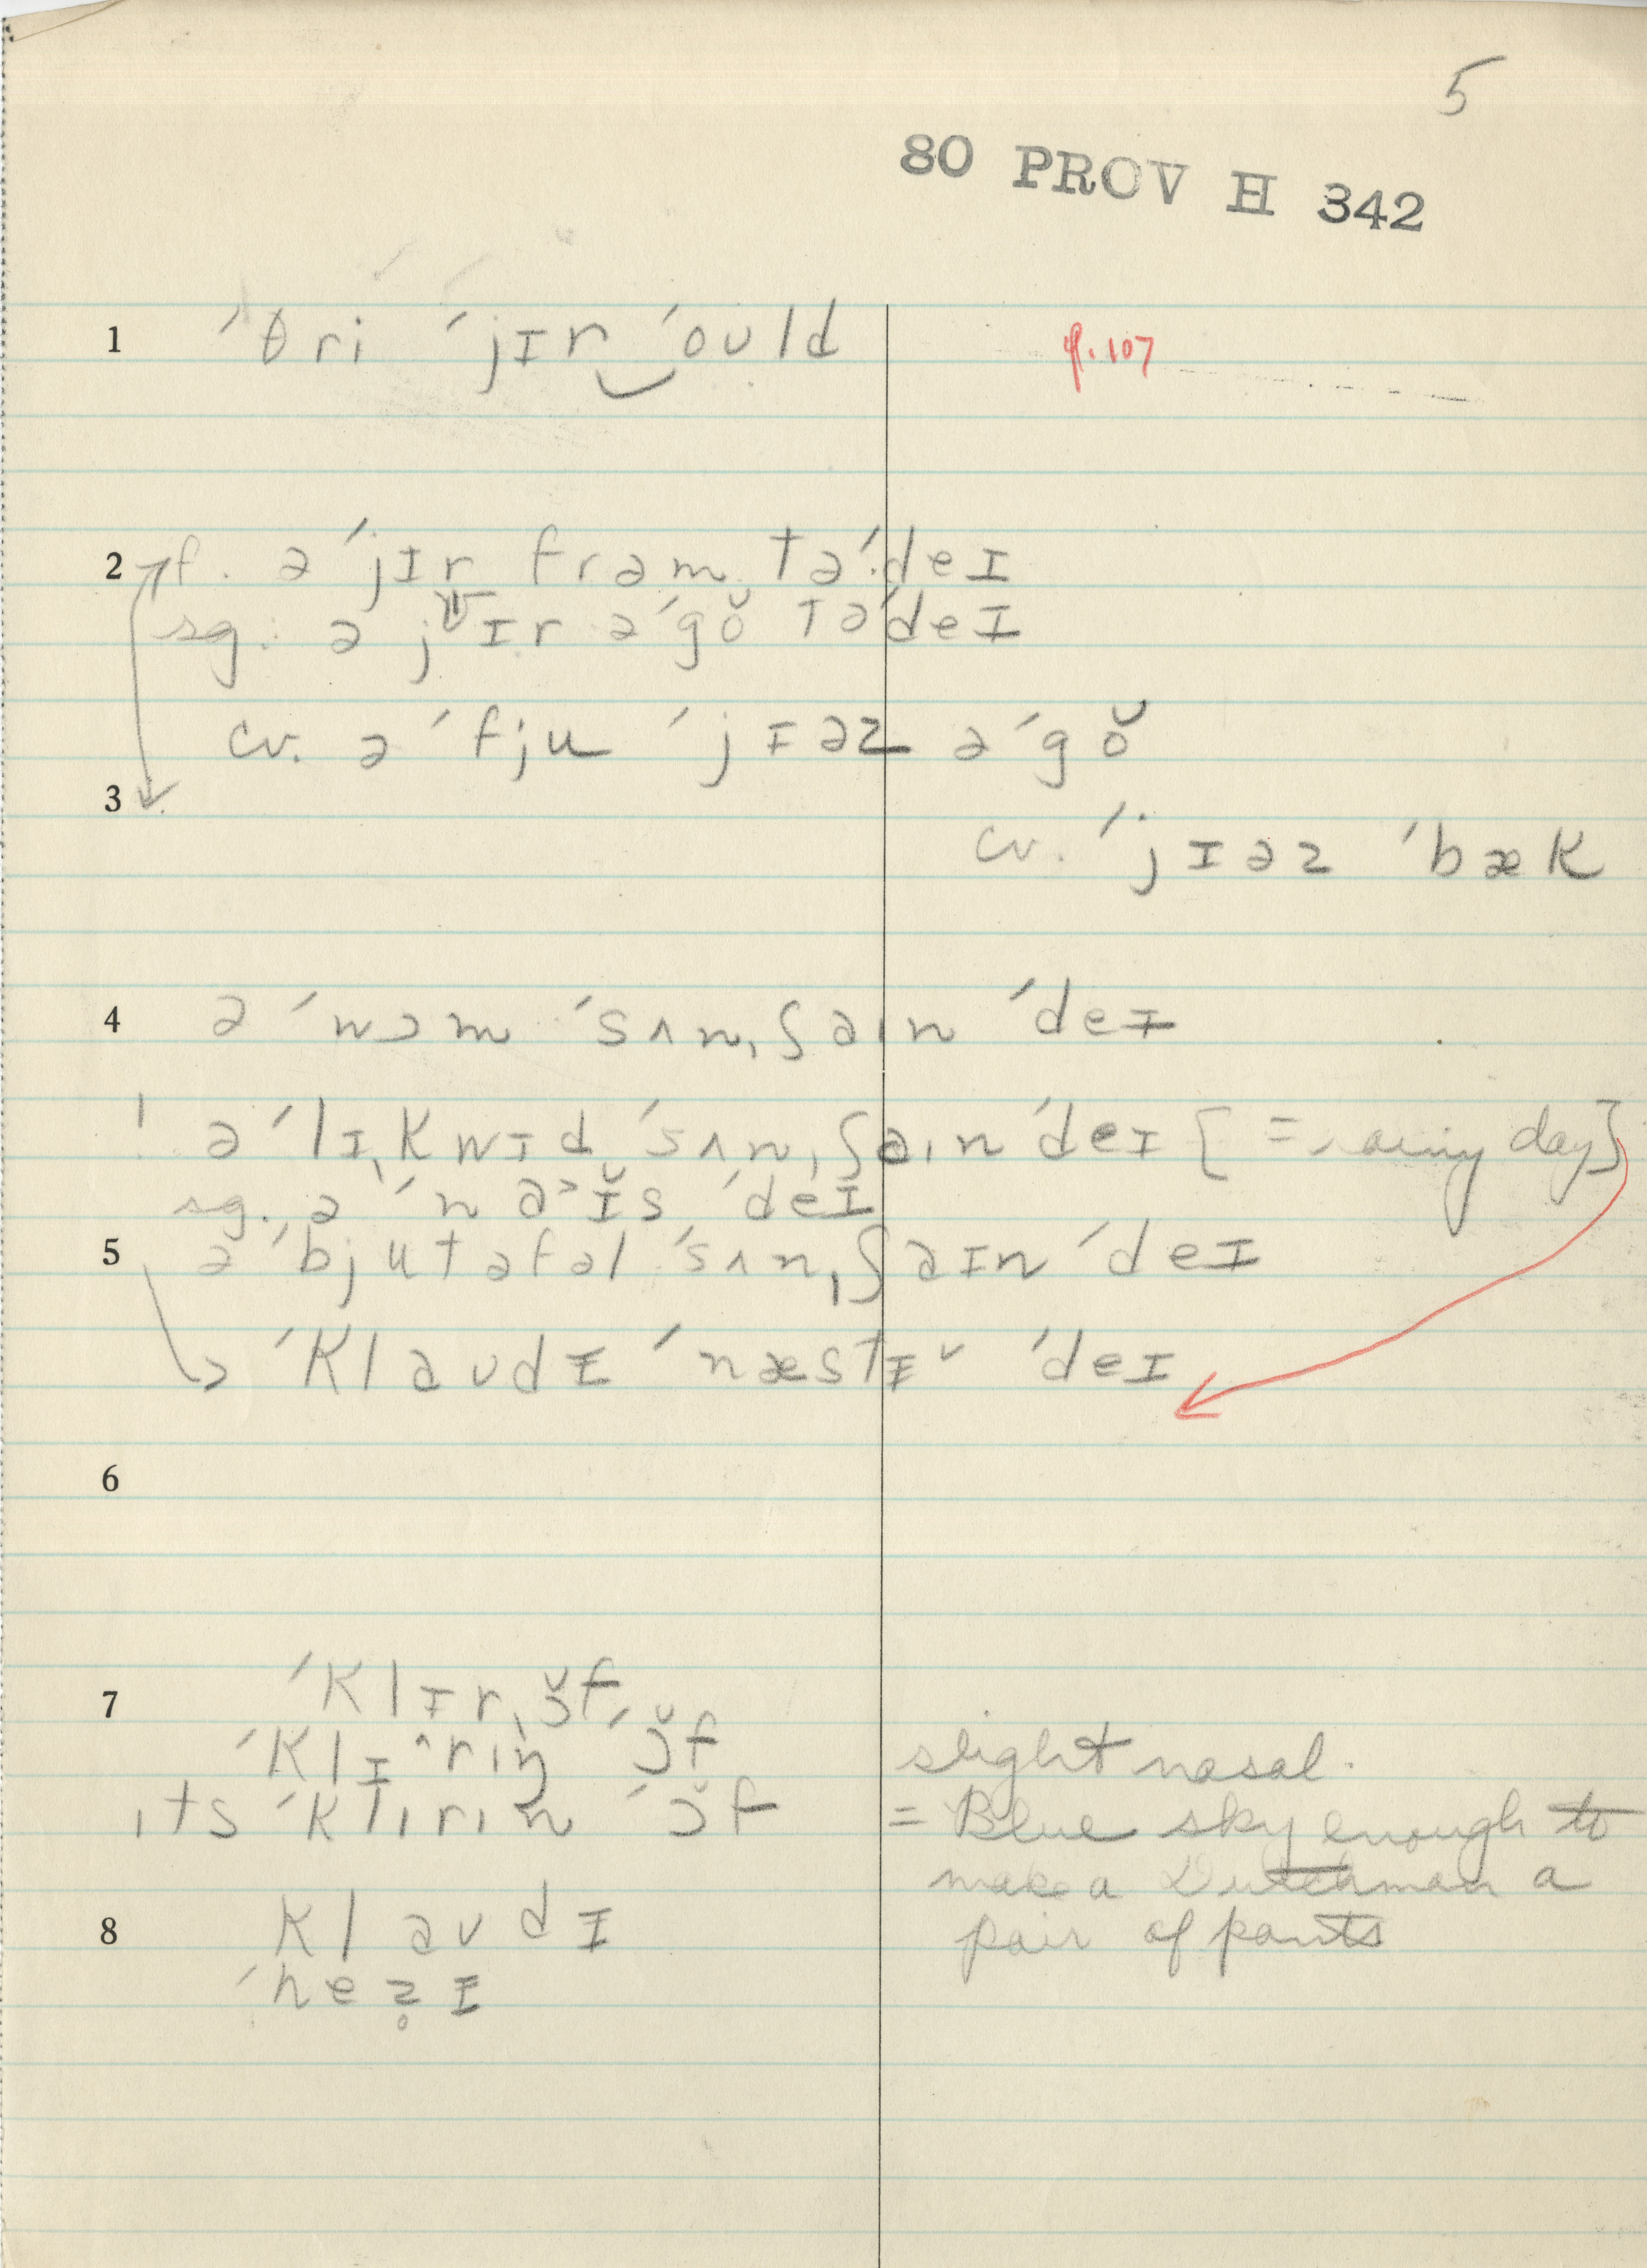 5
80 PROV H 342
1 ´θri ´jɪr‿´oʊld
p. 107
2 f. ə ´jɪr frəm tə´deɪ
sg. ə jɪr ə´gɔ̆ tə´deɪ
cv. ə ´fju ´jɪəz ə´gɔ̆
3
cv. ´jɪəz ´bæk
4 ə ´wɔm ´sʌnˌʃaɪn ´deɪ
! ə ´lɪˌkwɪd ´sʌnˌʃaɪn ´deɪ [= rainy day]
sg. ə ´na˃ɪ̆s ´deɪ
5 ə ´bjutəfəl ´sʌnˌʃaɪn ´deɪ
´klaʊdɪ ´næstɪ˅ ´deɪ
6
7 ´klɪrˌɔ̆f
´klɪ^rɪŋ ´ɔ̆f
ɪts ´klɪrɪn ´ɔ̆f
slight nasal.
= Blue sky enough to
make a Dutchman a
pair of pants
8 klaʊdɪ
´hez̥ɪ